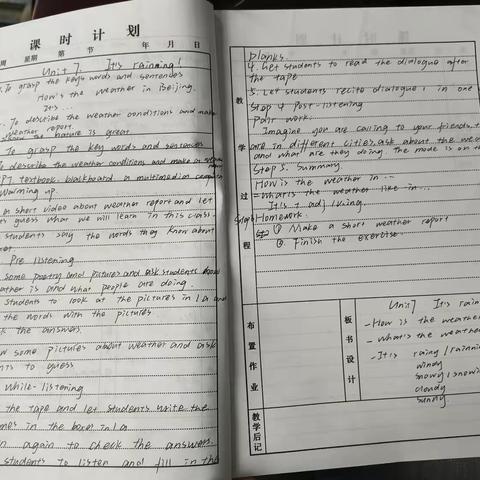 课时计划
周 星期 第 节 年 月 日
Unit 7 It's raining!
To grasp the keys words and sentences
How's the weather in Beijing.
It's ...
To describe the weather conditions and make
weather report
nature is great
To grasp the key words and sentences
To describe the weather conditions and make a
textbook, blackboard, a multimedia
Warming up.
a short video about weather report and let
guess what we will learn in this class.
students say the words they know about
Pre listening
some poetry and pictures and ask students
is and what people are doing.
students to look at the pictures in 1a and
the words with the pictures.
the answers.
some pictures about weather and ask
to guess
While-listening
the tape and let students write the
in the box in 1a
again to check the answers.
students to listen and fill in the
课时计划
教学过程
blanks.
4. Let students to read the dialogue after
the tape
5. Let students recite dialogue 1 in one
Step 4 Post-listening
Pair work:
Imagine you are calling to your friends,
are in different cities, ask about the
and what are they doing. The mode is on
Step 5. Summary
How is the weather in ...
= What's the weather like in ...
It's + adj / Ving.
Step 6 Homework.
① Make a short weather report
② Finish the exercise.
布置作业
板书设计
Unit 7 It's
- How is the
- What's the
- It's
windy
cloudy
sunny.
教学后记